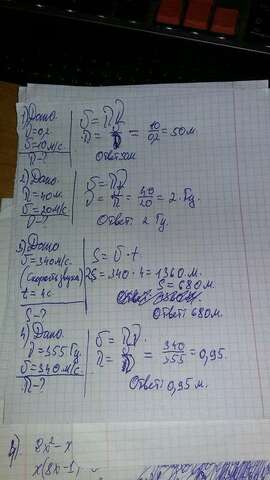 1) Дано
λ=0,2
υ=10м/с.
λ-?
υ=λν
λ= = 10/0,2 = 50м.
Ответ:50м.
2) Дано.
λ=40м.
υ=20м/с.
υ=λν
ν= = 40/20 = 2 Гц.
Ответ: 2 Гц.
3) Дано
υ=340м/с.
(Скорость звука)
t=4с.
S-?
S=υ·t
2S=340·4=1360м.
S=680м.
Ответ: 680м.
4) Дано.
ν=355Гц.
υ=340м/с.
λ-?
υ=λν
λ= = 340/355 = 0,95.
Ответ: 0,95м.
2x²-x
x(8x-1)